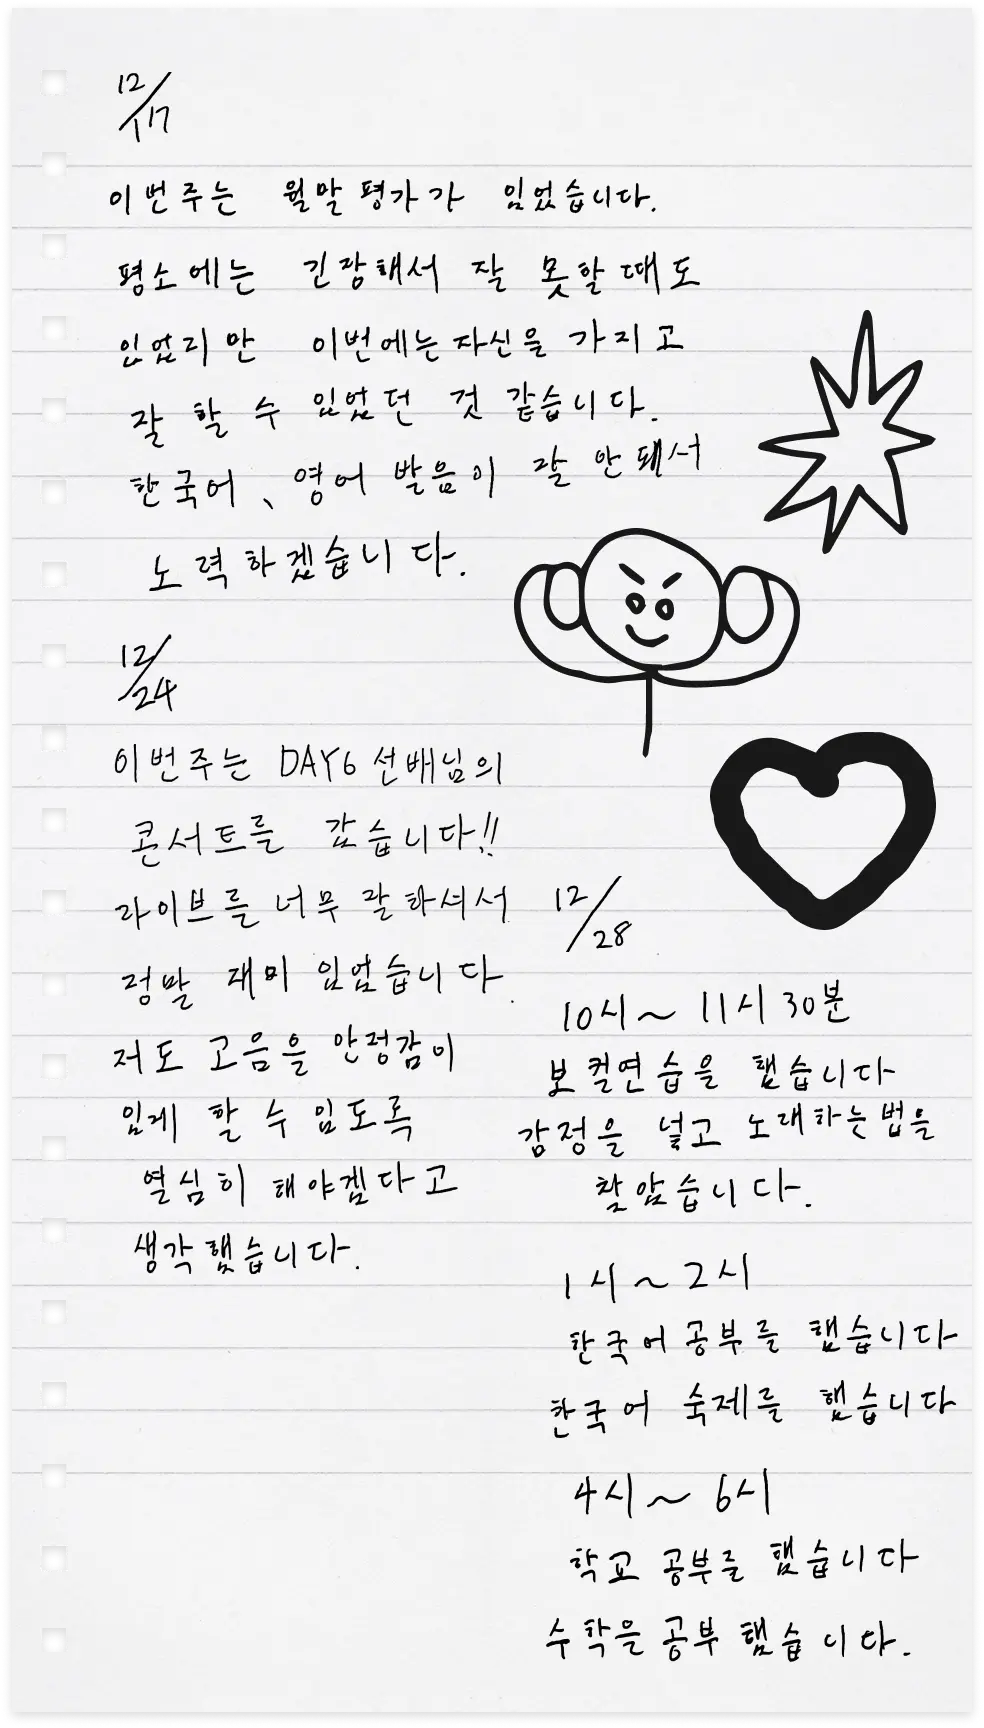 12/17
이번주는 월말평가가 있었습니다.
평소에는 긴장해서 잘 못할때도
있었지만 이번에는자신을 가지고
잘 할 수 있었던 것 같습니다.
한국어、영어 발음이 잘 안돼서
노력하겠습니다.
12/24
이번주는 DAY6 선배님의
콘서트를 갔습니다!!
라이브를 너무 잘하셔서
정말 재미 있었습니다.
저도 고음을 안정감이
있게 할 수 있도록
열심히 해야겠다고
생각했습니다.
12/28
10시~ 11시 30분
보컬연습을 했습니다
감정을 넣고 노래하는법을
찾았습니다.
1시~2시
한국어공부를 했습니다
한국어 숙제를 했습니다
4시~ 6시
학교 공부를 했습니다
수학을 공부 했습니다.